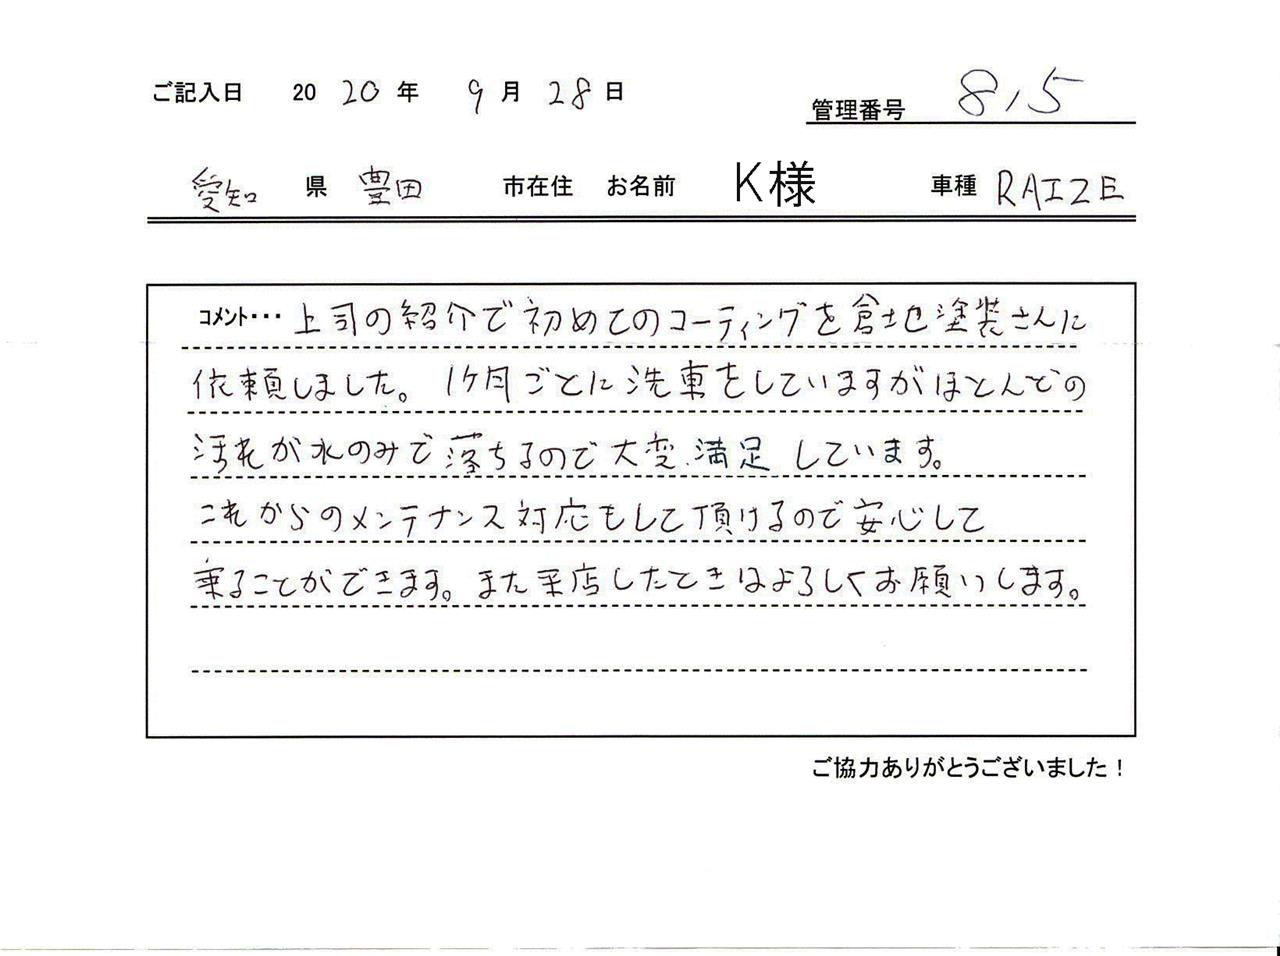 ご記入日 2020年 9月28日
管理番号 815
愛知県 豊田市在住 お名前 K様 車種 RAIZE
コメント･･･上司の紹介で初めてのコーティングを倉地塗装さんに
依頼しました。1ヶ月ごとに洗車をしていますがほとんどの
汚れが水のみで落ちるので大変満足しています。
これからのメンテナンス対応もして頂けるので安心して
乗ることができます。また来店したときはよろしくお願いします。
ご協力ありがとうございました！